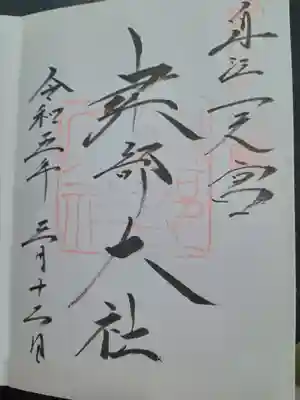 近江一之宮
建部大社
令和五年 三月十六日